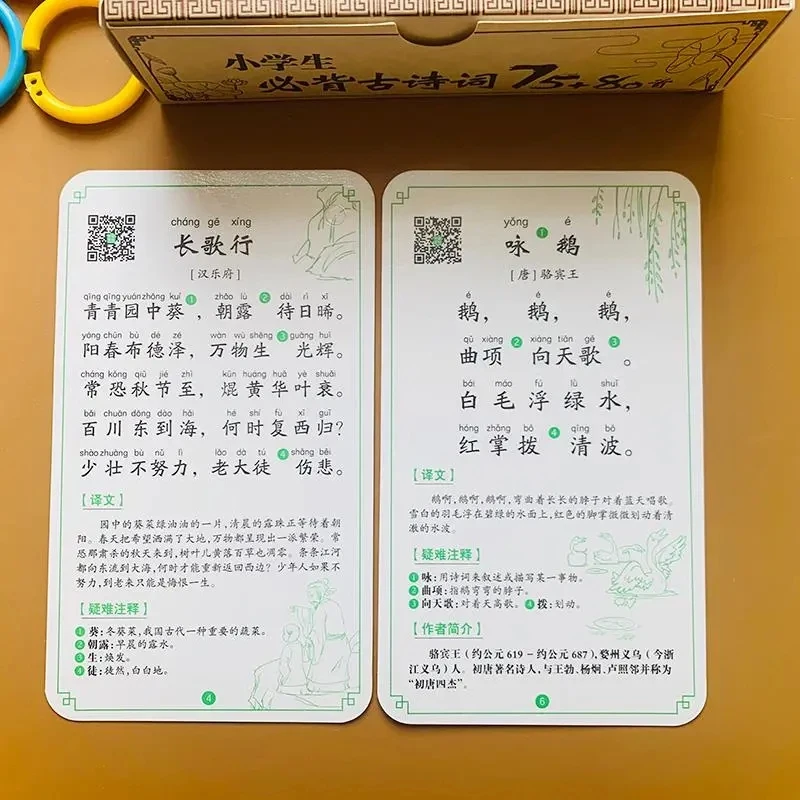 小学生
必背古诗词75+80首
cháng gē xíng
长歌行
[汉乐府]
qīng qīng yuán zhōng kuí zhāo lù dài rì xī
青青园中葵❶，朝露❷待日晞。
yáng chūn bù dé zé wàn wù shēng guāng huī
阳春布德泽，万物生❸光辉。
cháng kǒng qiū jié zhì kūn huáng huā yè shuāi
常恐秋节至，焜黄华叶衰。
bǎi chuān dōng dào hǎi hé shí fù xī guī
百川东到海，何时复西归？
shào zhuàng bù nǔ lì lǎo dà tú shāng bēi
少壮不努力，老大徒❹伤悲。
【译文】
园中的葵菜绿油油的一片，清晨的露珠正等待着朝
阳。春天把希望洒满了大地，万物都呈现出一派繁荣。常
恐那肃杀的秋天来到，树叶儿黄落百草也凋零。条条江河
都向东流到大海，何时才能重新返回西边？少年人如果不
努力，到老来只能是悔恨一生。
【疑难注释】
❶葵：冬葵菜，我国古代一种重要的蔬菜。
❷朝露：早晨的露水。
❸生：焕发。
❹徒：徒然，白白地。
4
yǒng é
咏❶鹅
[唐]骆宾王
é é é
鹅，鹅，鹅，
qū xiàng xiàng tiān gē
曲项❷向天歌❸。
bái máo fú lǜ shuǐ
白毛浮绿水，
hóng zhǎng bō qīng bō
红掌拨❹清波。
【译文】
鹅啊，鹅啊，鹅啊，弯曲着长长的脖子对着蓝天唱歌。
雪白的羽毛浮在碧绿的水面上，红色的脚掌微微划动着清
澈的水波。
【疑难注释】
❶咏：用诗词来叙述或描写某一事物。
❷曲项：指鹅弯弯的脖子。
❸向天歌：对着天高歌。❹拨：划动。
【作者简介】
骆宾王（约公元619－约公元687），婺州义乌（今浙
江义乌）人。初唐著名诗人，与王勃、杨炯、卢照邻并称为
“初唐四杰”。
6